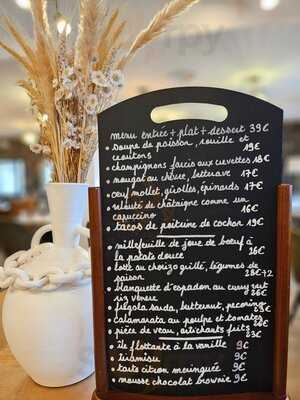 menu entrée + plat + dessert 39€
• soupe de poisson, rouille et
croutons 19€
• champignons farcis aux crevettes 18€
• nougat au chèvre, betterave 17€
• œuf mollet, girolles, épinards 17€
• velouté de chataigne comme un
capuccino 16€
• tacos de poitrine de cochon 19€
• millefeuille de joue de bœuf à
la patate douce 26€
• lotte au chorizo grillé, légumes de
saison 28€+2
• blanquette d'espadon au curry vert
riz venere 26€
• fregola sarda, butternut, pecorino 23€
• calamarata au poulpe et tomates 26€
• pièce de veau, artichauts frits 23€
• ile flottante à la vanille 9€
• tiramisu 9€
• tarte citron meringuée 9€
• mousse chocolat brownie 9€